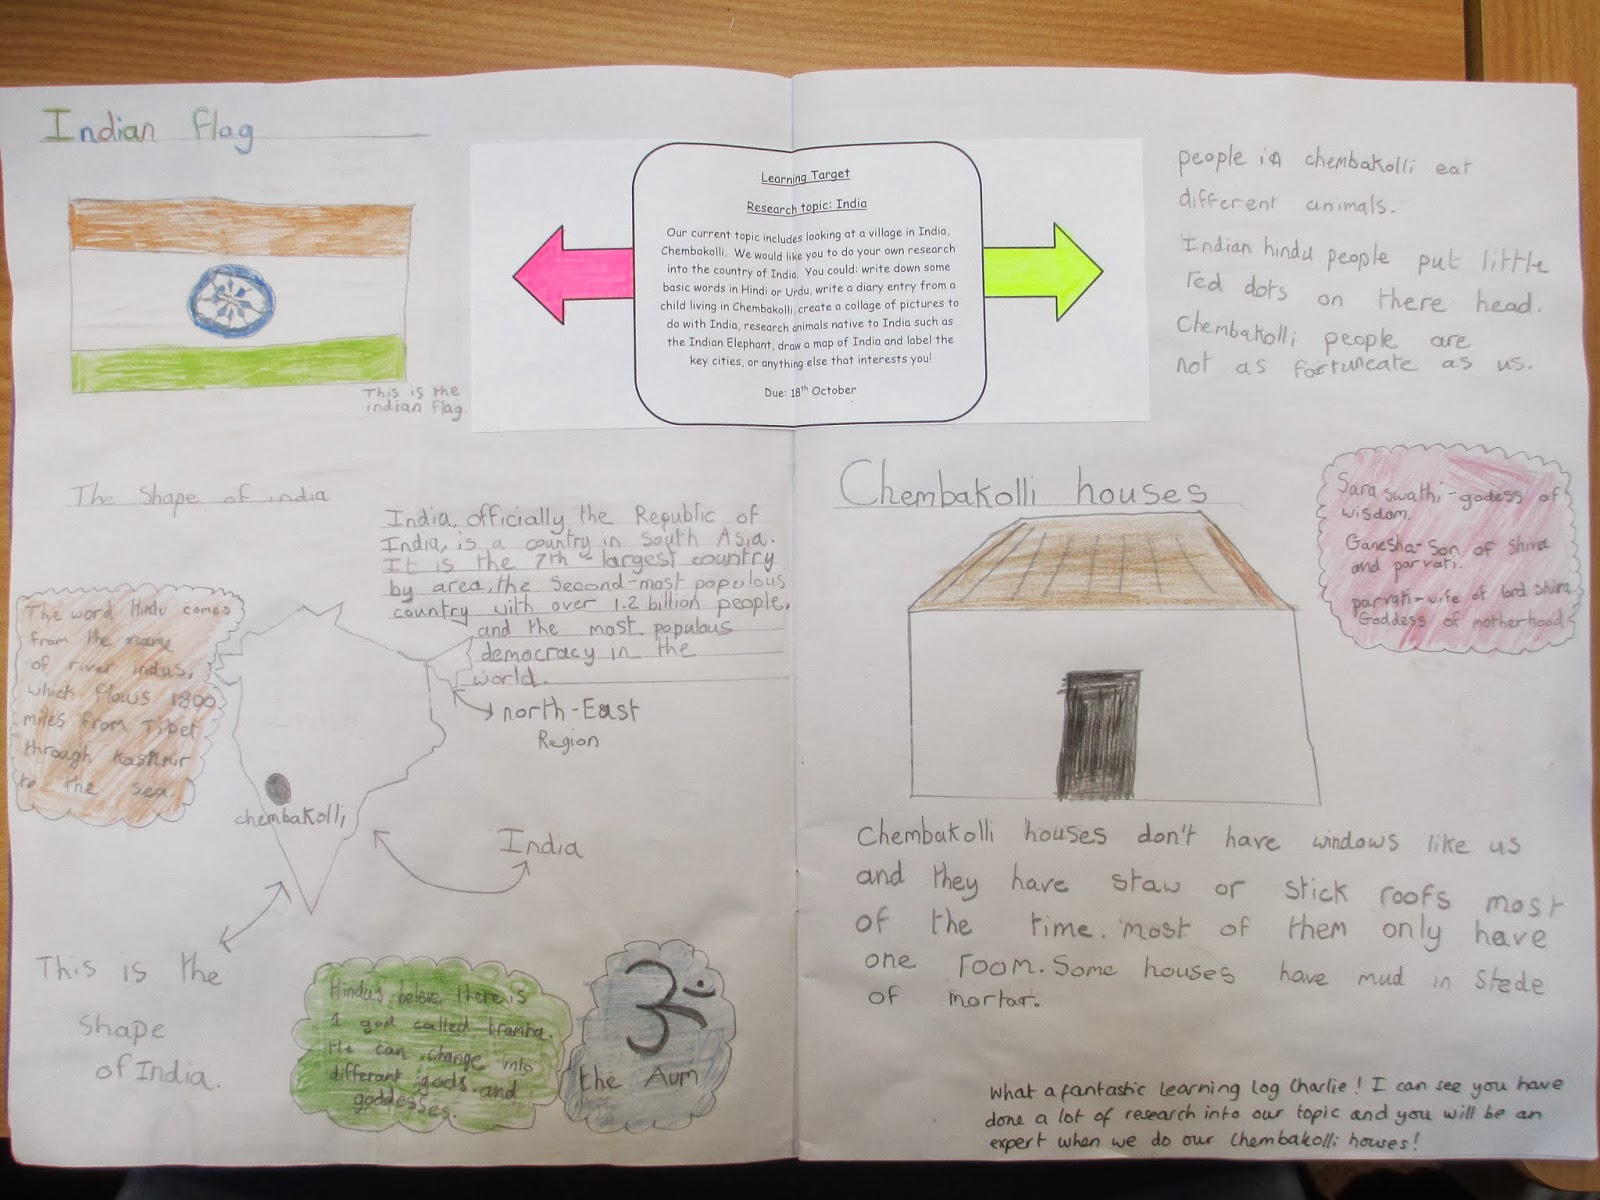 Indian flag
This is the
indian flag
Learning Target
Research topic: India
Our current topic includes looking at a village in India,
Chembakolli. We would like you to do your own research
into the country of India. You could: write down some
basic words in Hindi or Urdu, write a diary entry from a
child living in Chembakolli, create a collage of pictures to
do with India, research animals native to India such as
the Indian Elephant, draw a map of India and label the
key cities, or anything else that interests you!
Due: 18th October
people in chembakolli eat
different animals.
Indian hindu people put little
red dots on there head.
Chembakolli people are
not as fortuneate as us.
The Shape of india
India, officially the Republic of
India, is a country in South Asia.
It is the 7th largest country
by area, the Second-most populous
country with over 1.2 billion people,
and the most populous
democracy in the
world.
The word Hindu comes
from the name
of river indus,
which flows 1800
miles from Tibet
through Kashmir
to the sea.
north-East
Region
chembakolli
India
This is the
shape
of India.
Hindus beleve there is
1 god called bramha.
He can change into
differant gods and
goddesses.
ॐ
the Aum
Chembakolli houses
Saraswathi-godess of
wisdom.
Ganesha-Son of Shiva
and parvati.
parvati-wife of lord shiva
Goddess of motherhood
Chembakolli houses don't have windows like us
and they have staw or stick roofs most
of the time. most of them only have
one room. Some houses have mud in stede
of mortar.
What a fantastic learning log Charlie! I can see you have
done a lot of research into our topic and you will be an
expert when we do our Chembakolli houses!